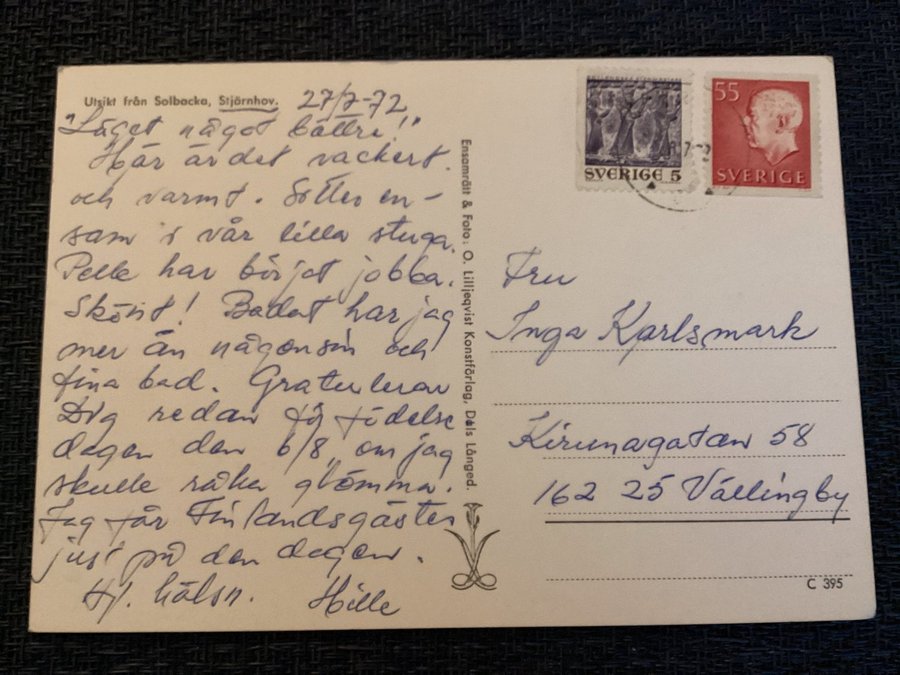 Utsikt från Solbacka, Stjärnhov. 27/7-72
"Läget något bättre!"
Här är det vackert
och varmt. Sitter en-
sam i vår lilla stuga.
Pelle har börjat jobba.
Skönt! Badat har jag
mer än någonsin och
fina bad. Gratulerar
Dig redan för födelse
dagen den 6/8, om jag
skulle råka glömma.
Jag får Finlandsgäster
just på den dagen.
Hj. hälsn. Hille
Ensamrätt & Foto: O. Lilljeqvist Konstförlag, Dals Långed.
SVERIGE 5
55
SVERIGE
Fru
Inga Karlsmark
Kirunagatan 58
162 25 Vällingby
C 395